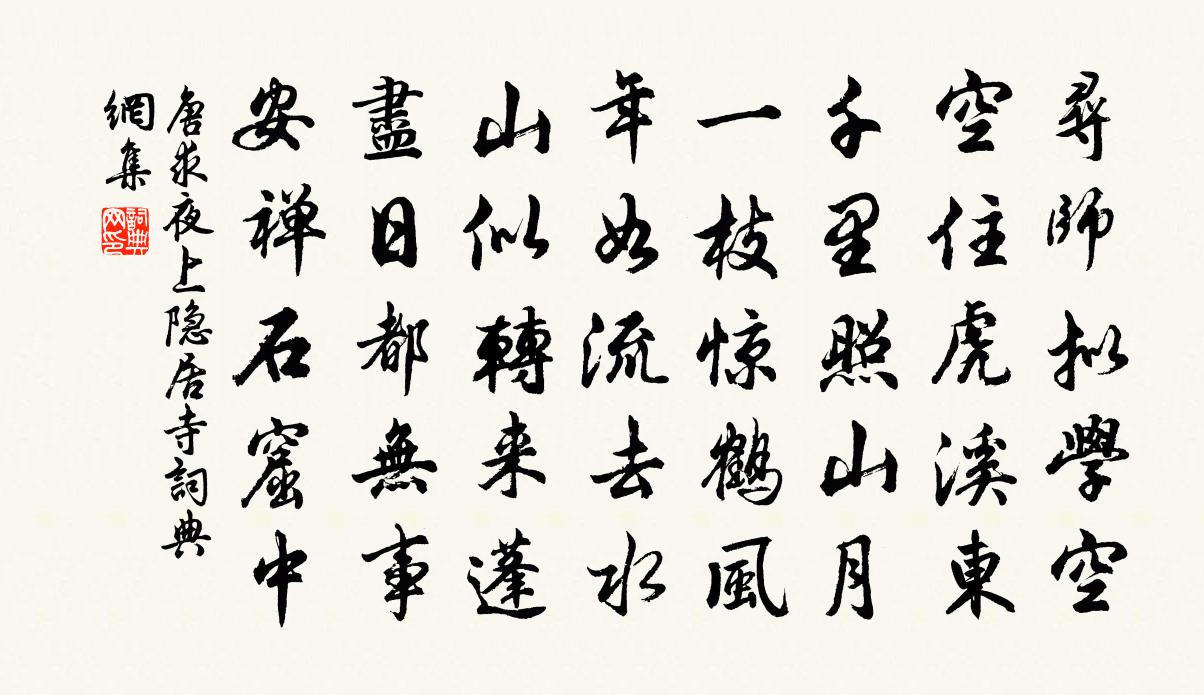 尋師拟學空
空住虎溪東
千里照山月
一枝惊鶴風
年如流去水
山似轉来蓬
盡日都無事
安禅石窟中
唐求夜上隐居寺詞典
網集
詞典
网印